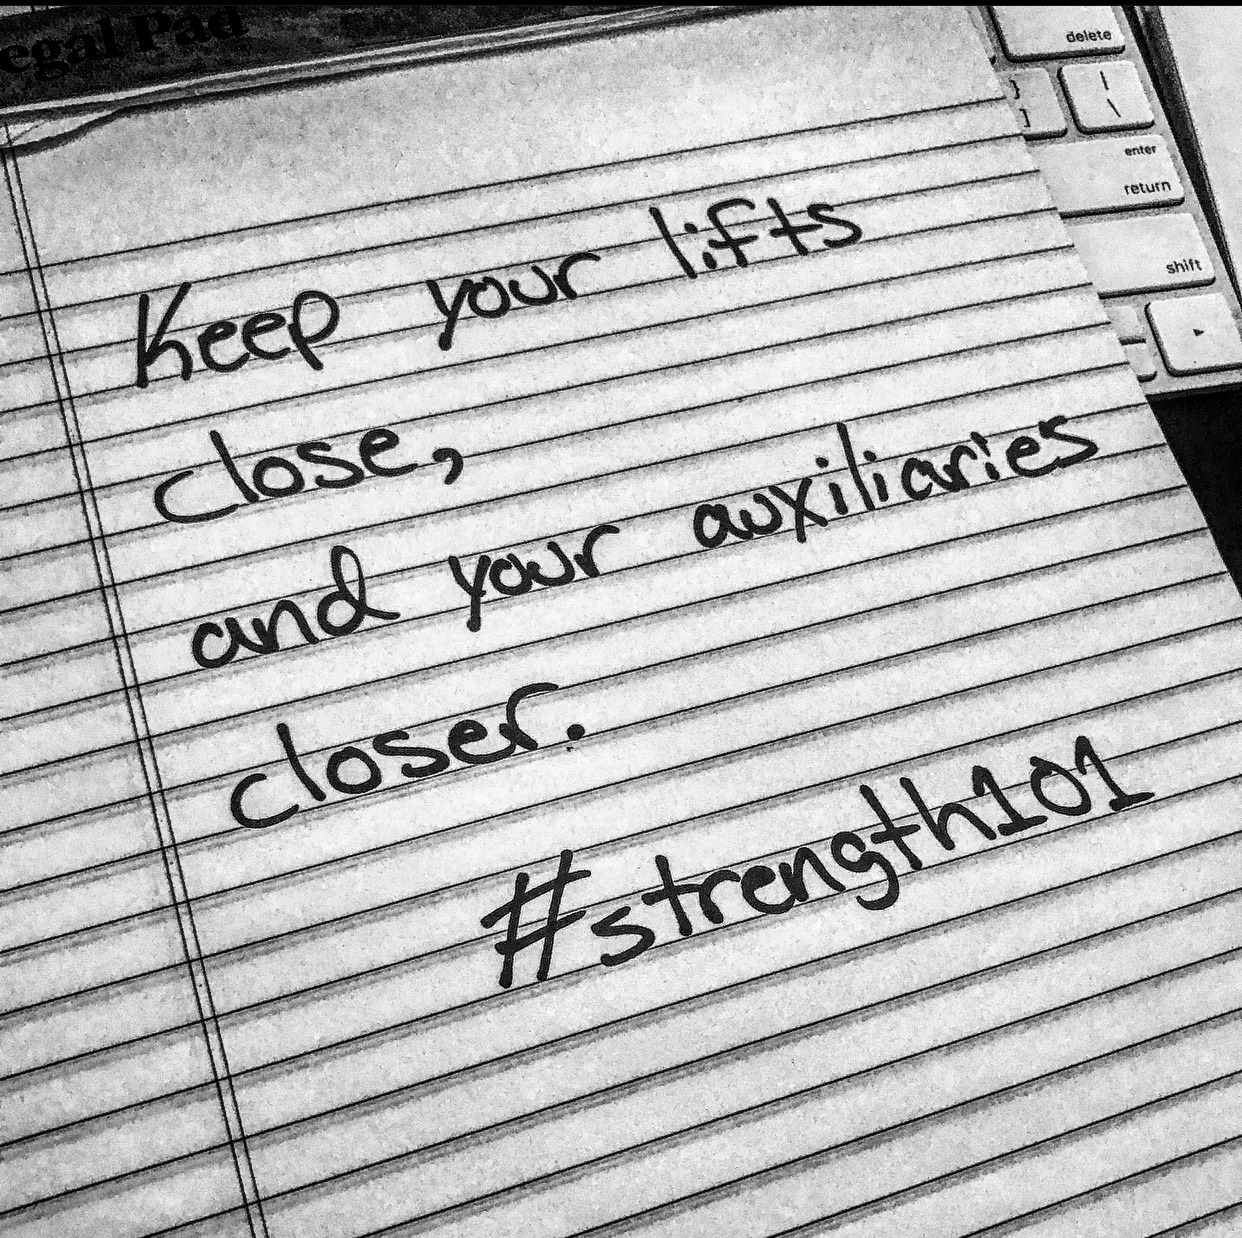 egal Pad
delete
}
]
|
\
enter
return
shift
Keep your lifts
close,
and your auxiliaries
closer.
#strength101